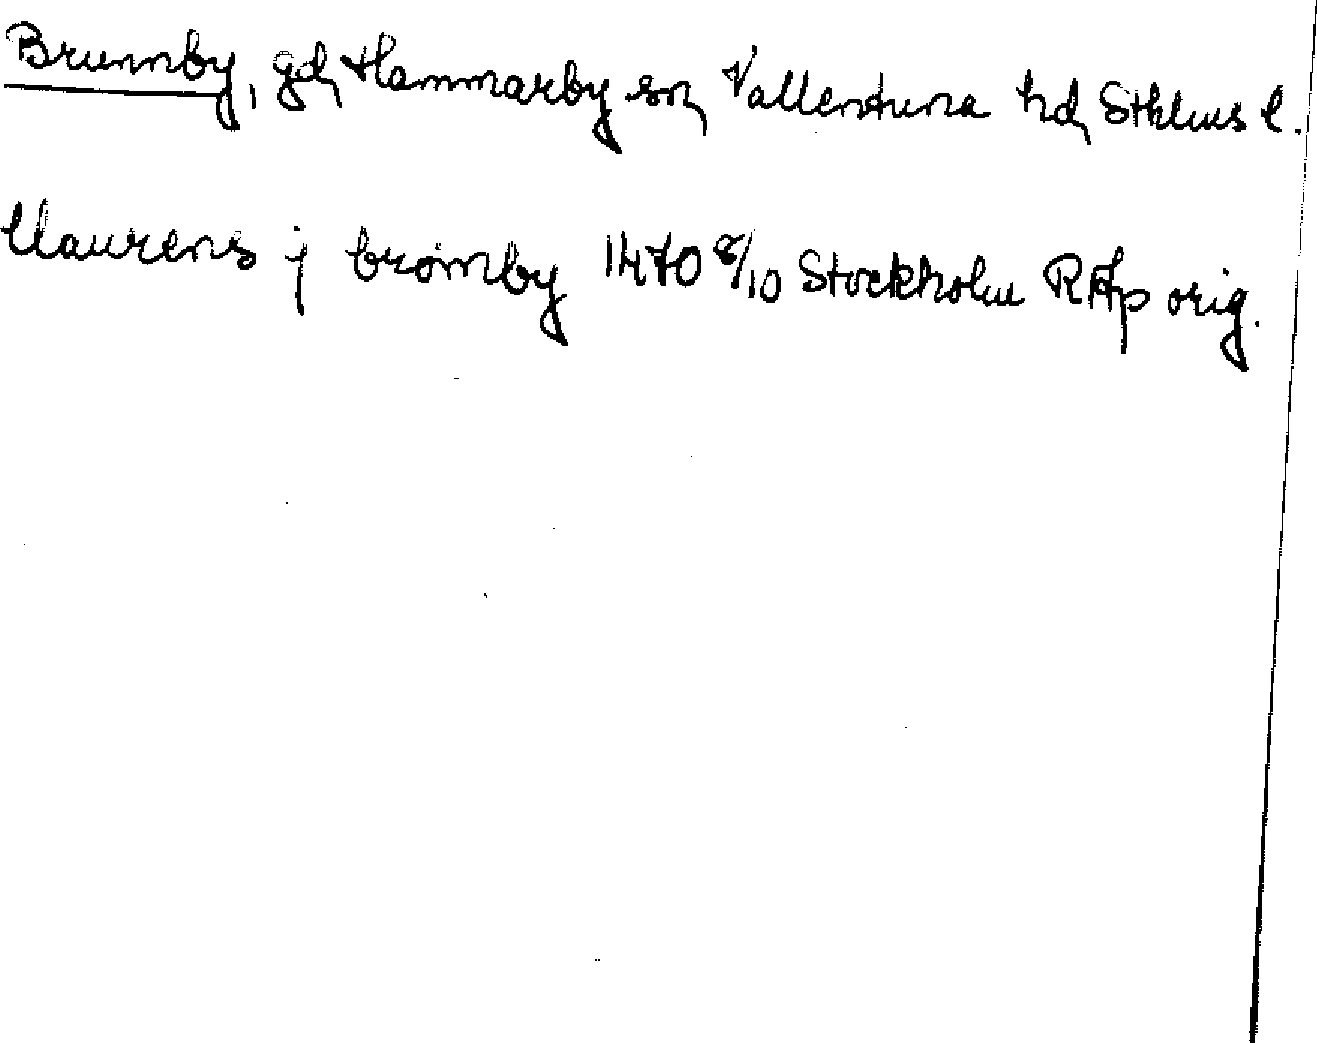 Brunnby, gd, Hammarby sn, Vallentuna hd, Sthlms l.
llaurens j brømby 1470 8/10 Stockholm RAp orig.